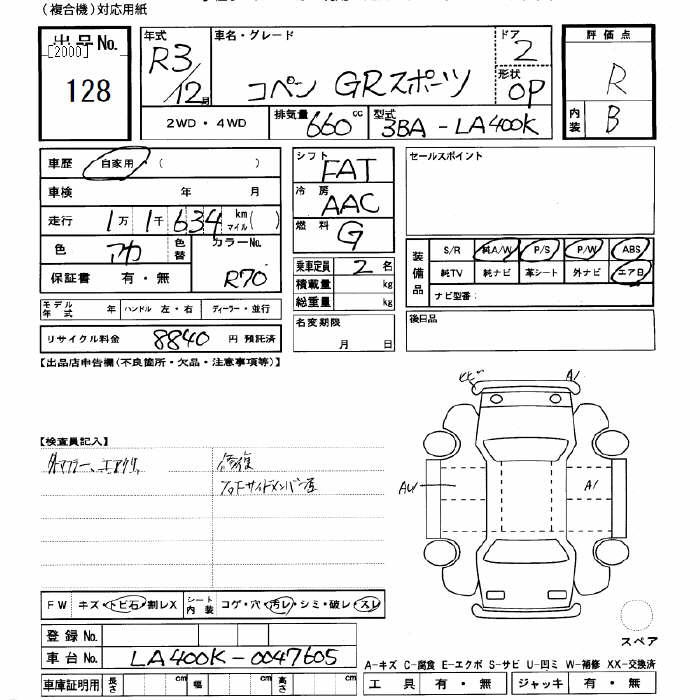 (複合機)対応用紙
出品No.
[2000]
128
年式 R3/12月
車名・グレード
コペン GRスポーツ
ドア 2
形状 OP
評価点
R
内装 B
2WD・4WD
排気量 660 cc
型式 3BA-LA400K
車歴 自家用 ( )
車検 年 月
走行 1万 1千 634 km マイル ( )
色 アカ 色替 カラーNo. R70
保証書 有・無
モデル年式 年 ハンドル 左・右 ディーラー・並行
リサイクル料金 8840 円 預託済
シフト FAT
冷房 AAC
燃料 G
乗車定員 2 名
積載量 kg
総重量 kg
名変期限
月 日
セールスポイント
装備品
S/R 純A/W P/S P/W ABS
純TV 純ナビ 革シート 外ナビ エアB
ナビ型番:
後日品
【出品店申告欄(不良箇所・欠品・注意事項等)】
【検査員記入】
外マフラー、エアクリ
修復
A1
A1
FW キズ・トビ石・割レX シート内装 コゲ・穴・汚レ・シミ・破レ・スレ
登録No.
車台No. LA400K-0047605
車庫証明用 長さ cm 幅 cm 高さ cm
スペア
A-キズ C-腐食 E-エクボ S-サビ U-凹ミ W-補修 XX-交換済
工具 有・無 ジャッキ 有・無